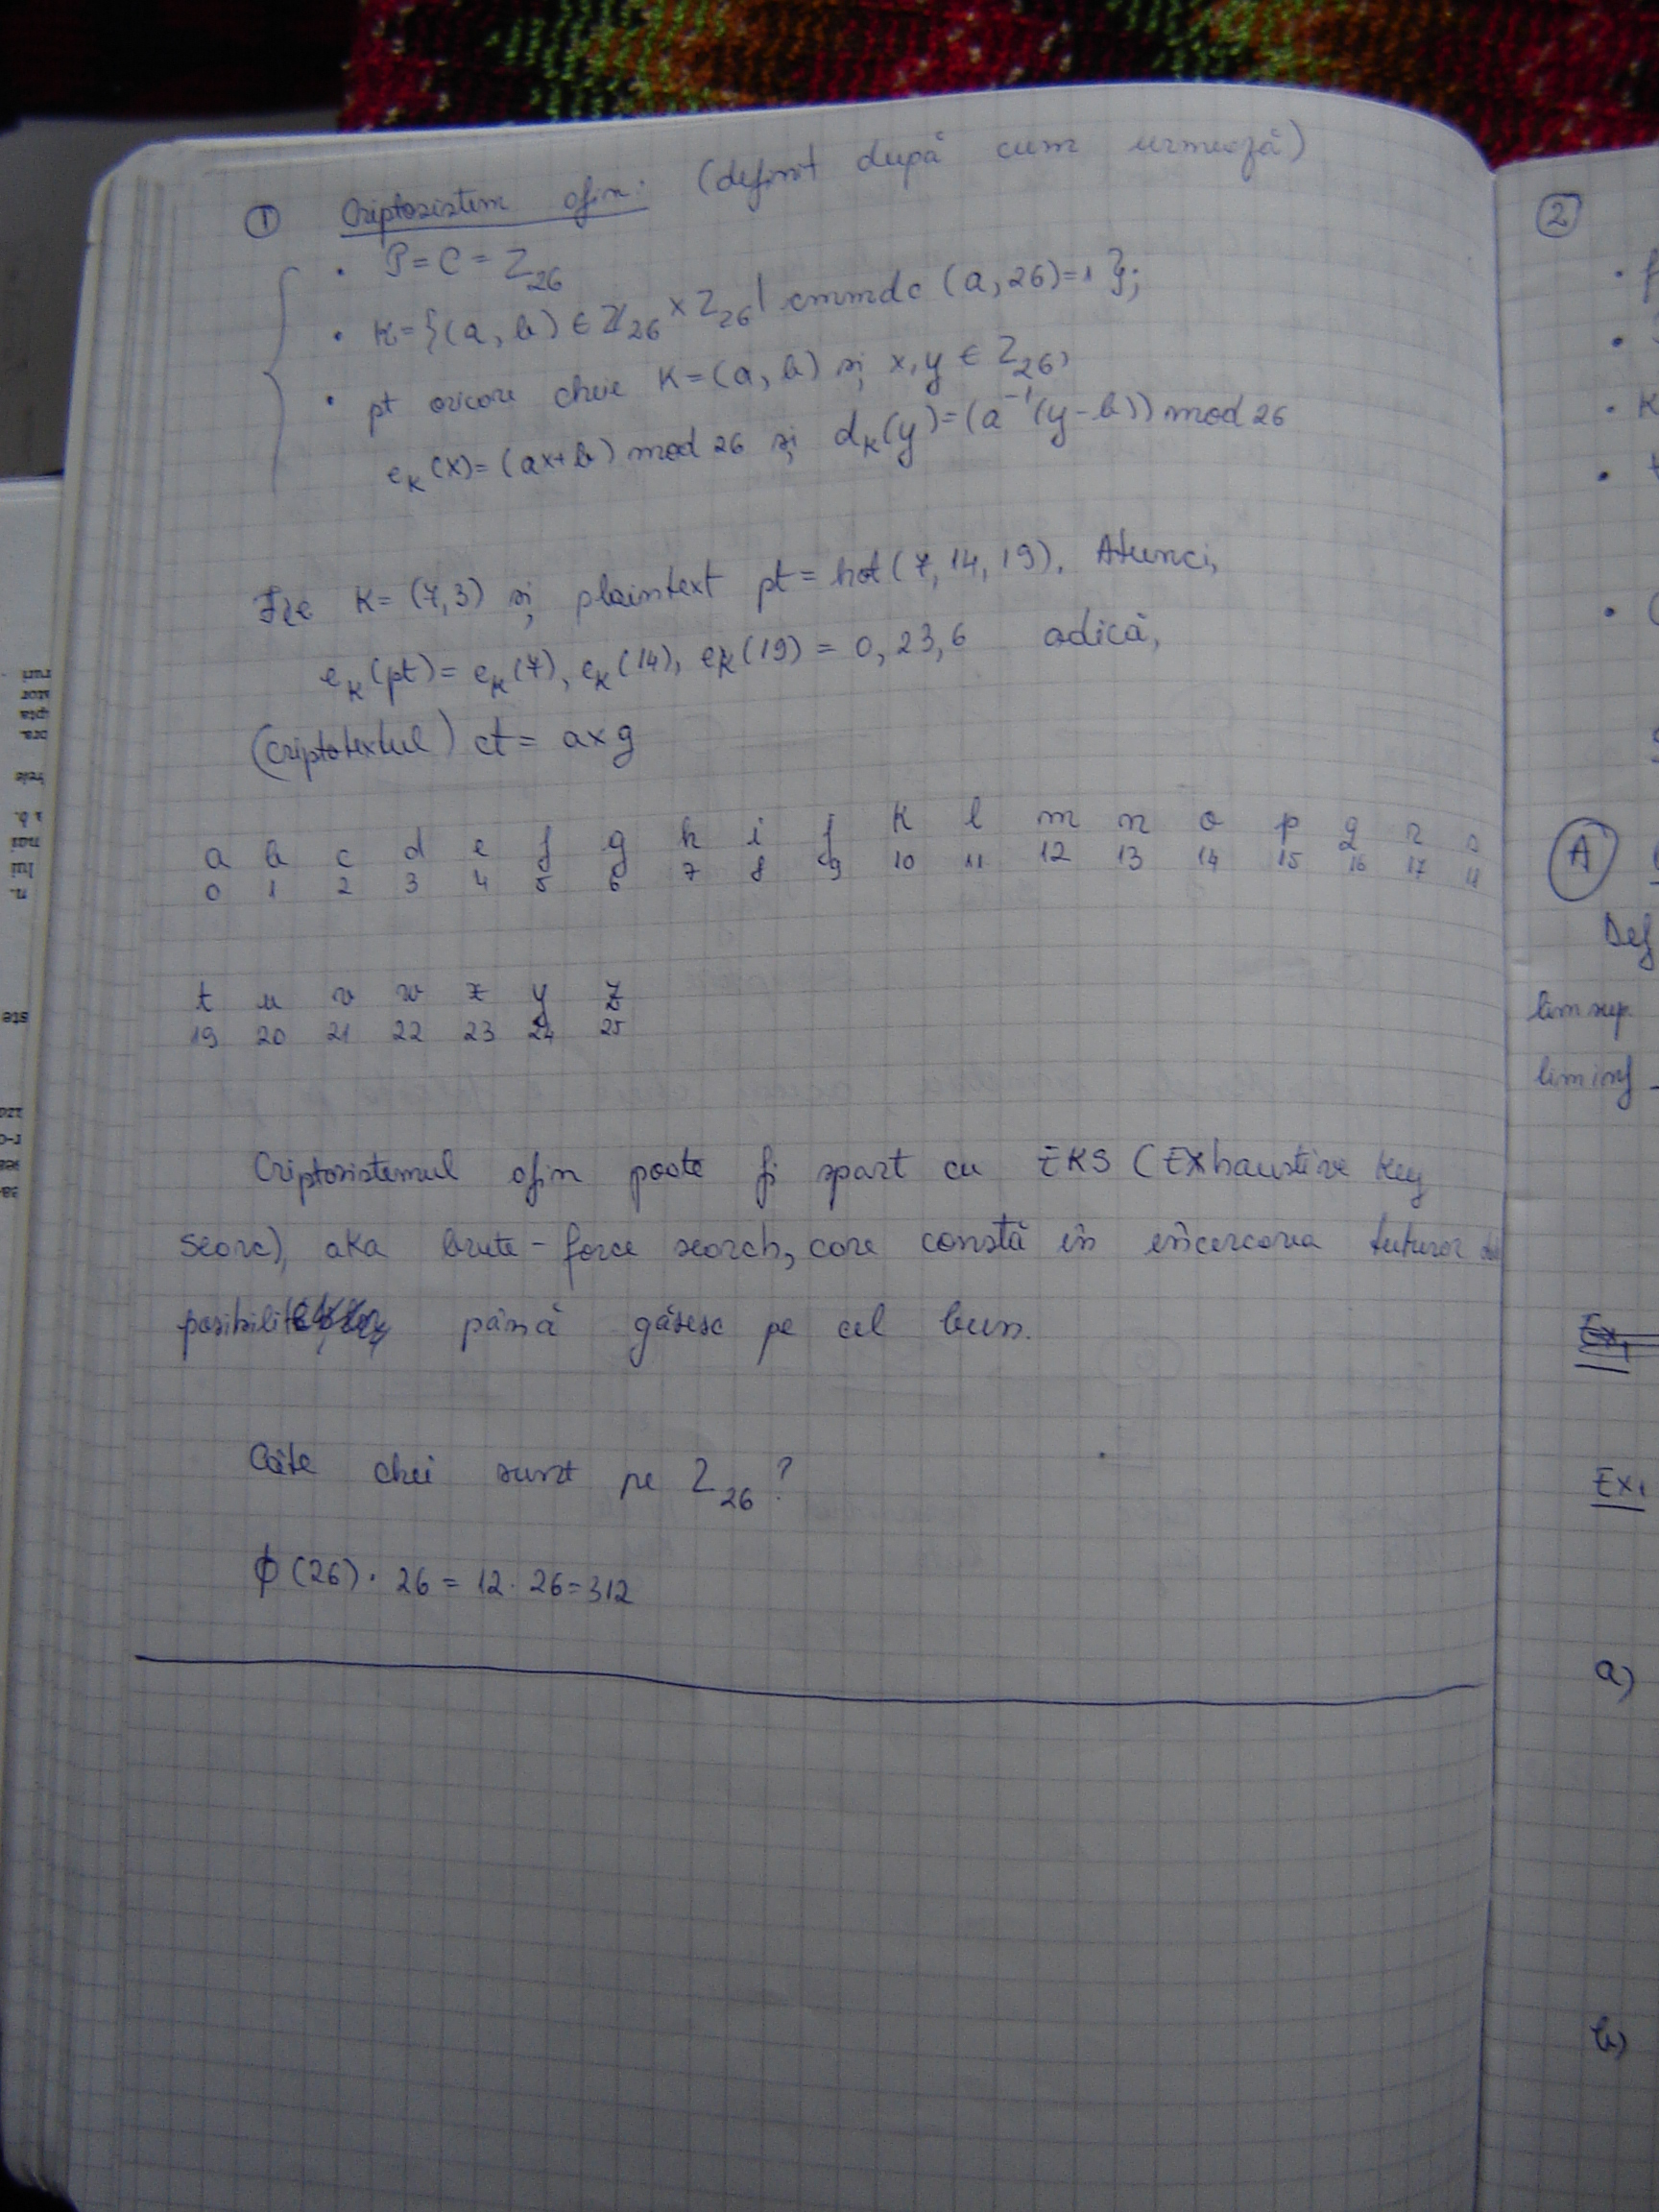 ① Criptosistem afin: (definit după cum urmează)
• P = C = Z₂₆
• K = {(a, b) ∈ Z₂₆ × Z₂₆ | cmmdc (a, 26) = 1 };
• pt oricare cheie K = (a, b) și x, y ∈ Z₂₆,
e_K(x) = (ax+b) mod 26 și d_K(y) = (a⁻¹(y-b)) mod 26
Fie K = (7,3) și plaintext pt = hot (7, 14, 19). Atunci,
e_K(pt) = e_K(7), e_K(14), e_K(19) = 0, 23, 6 adică,
(criptotextul) ct = axg
a b c d e f g h i j k l m n o p q r s
0 1 2 3 4 5 6 7 8 9 10 11 12 13 14 15 16 17 18
t u v w x y z
19 20 21 22 23 24 25
Criptosistemul afin poate fi spart cu EKS (EXhaustive Key
searc), aka brute-force search, care constă în încercarea tuturor
până găsesc pe cel bun.
Câte chei sunt pe Z₂₆?
ϕ(26) · 26 = 12 · 26 = 312
②
A
Def
lim sup
lim inf
Ex₁
Ex₁
a)
b)
ruri
ator
pta
ora.
hele
a b.
mai
lui
n.
ste